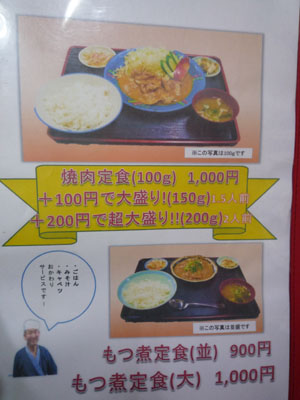 ※この写真は100gです
焼肉定食(100g) 1,000円
＋100円で大盛り!(150g)1.5人前
＋200円で超大盛り!!(200g)2人前
・ごはん
・みそ汁
・キャベツ
おかわり
サービスです!
※この写真は並盛です
もつ煮定食(並) 900円
もつ煮定食(大) 1,000円